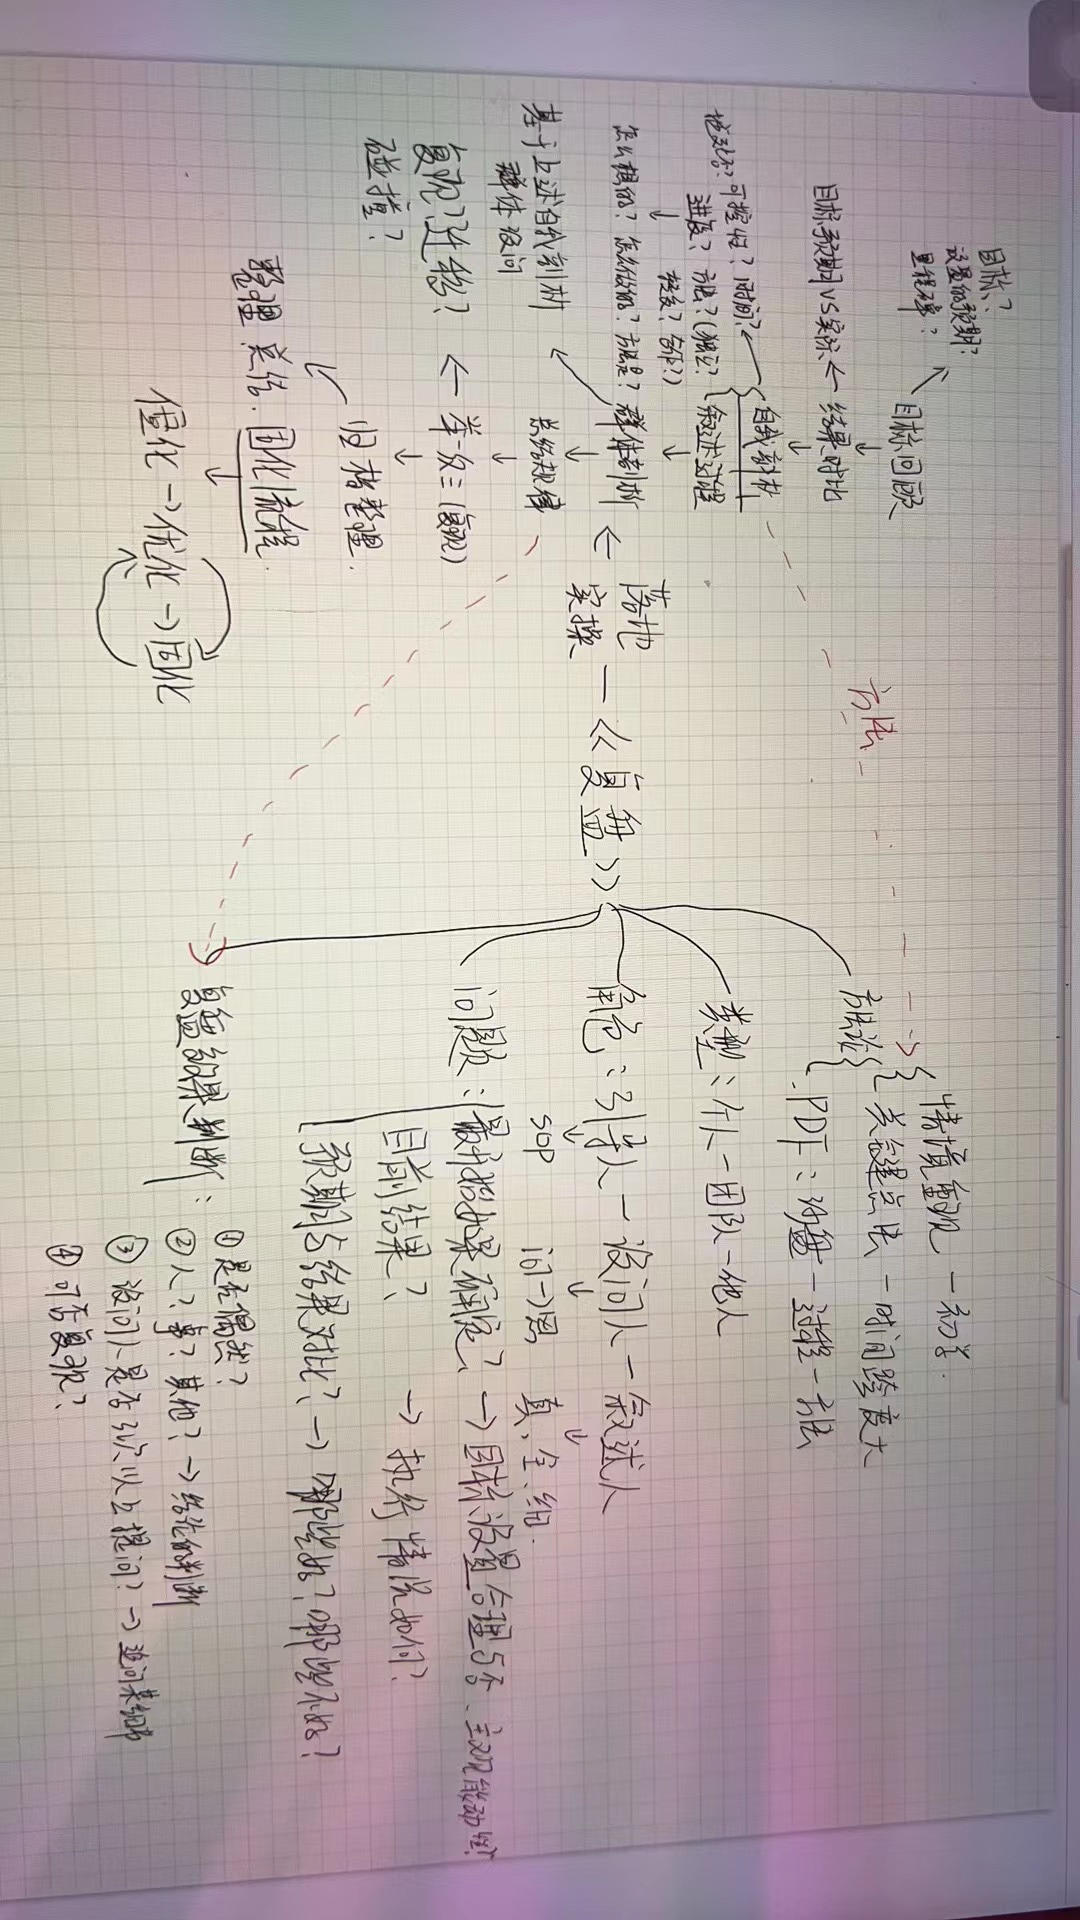 目标?
这是的预期?
里程碑?
目标回顾
目标预期VS实际 ← 结果对比
可控性? 时间?
自我剖析
进度? 方法? (独立?
叙述过程
怎么想的? 怎么做的?
群体剖析
基于上述自我剖析
群体设问
总结规律
复现? 迁移?
碰撞?
← 举一反三 (复现)
归档整理.
整理 总结. 固化流程.
僵化→优化→固化
落地
实操
《复盘》
方法
方法论
情境重现 — 初学
关键点法 — 时间跨度大
.PDF: 沙盘 — 过程 — 方法
类型: 个人 — 团队 — 他人
角色: 引导人 — 设问人 — 叙述人
SOP
问→困
真、全、细.
问题: 最初结果预定? → 目标设置合理与否、主观能动性?
目前结果? → 执行情况如何?
预期与结果对比? → 哪些好? 哪些不好?
复盘结果判断:
① 是否偶然?
② 人? 事? 其他? → 给出的判断
③ 设问人是否以上提问? → 追问其细节
④ 可否复现?